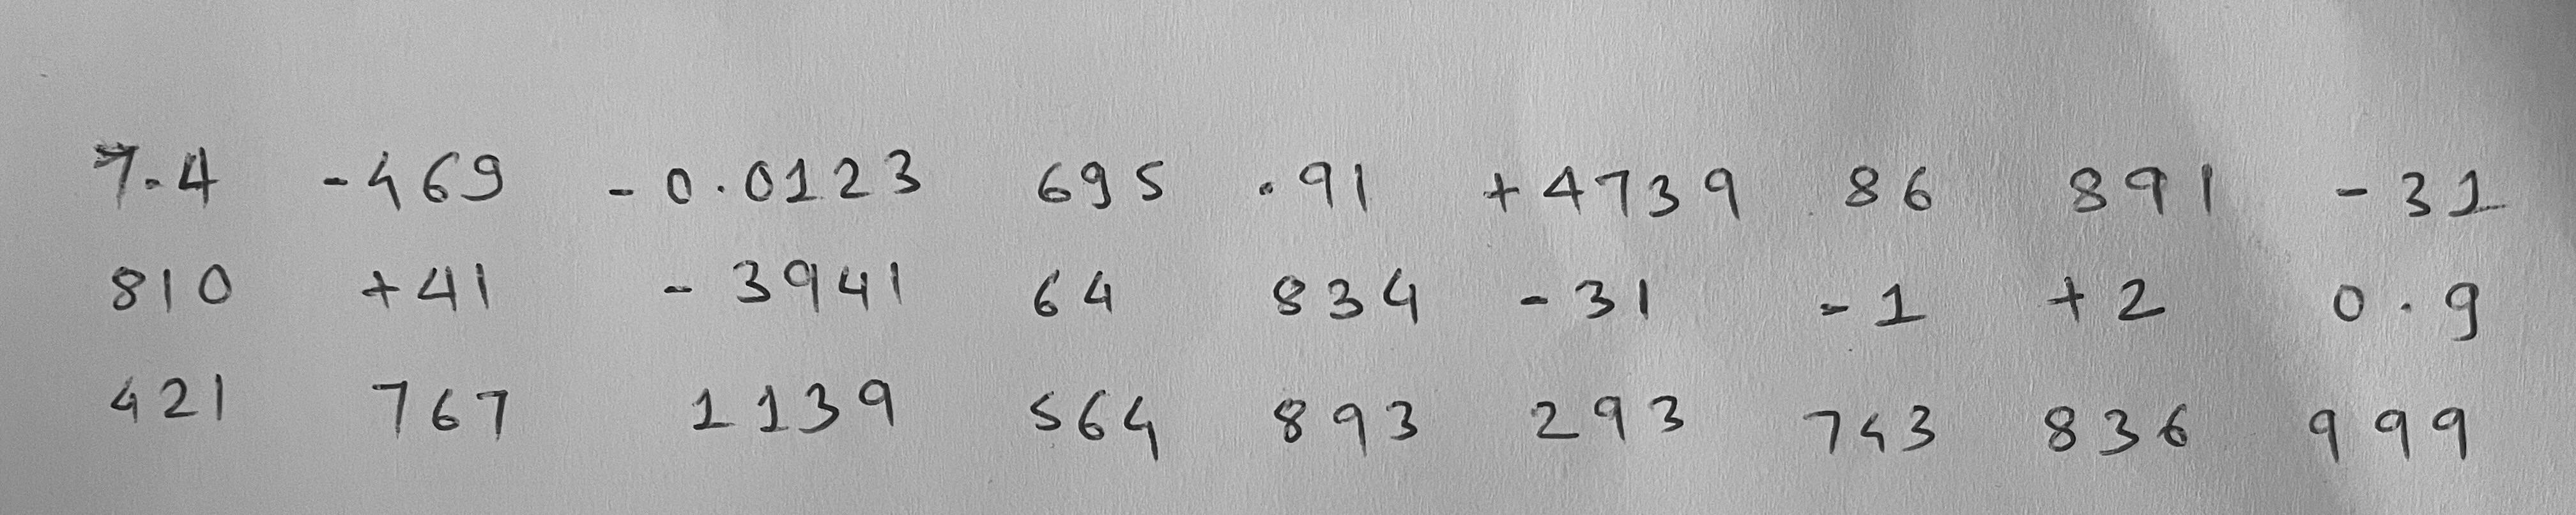 7.4 -469 -0.0123 695 .91 +4739 86 891 -31
810 +41 -3941 64 834 -31 -1 +2 0.9
421 767 1139 564 893 293 743 836 999